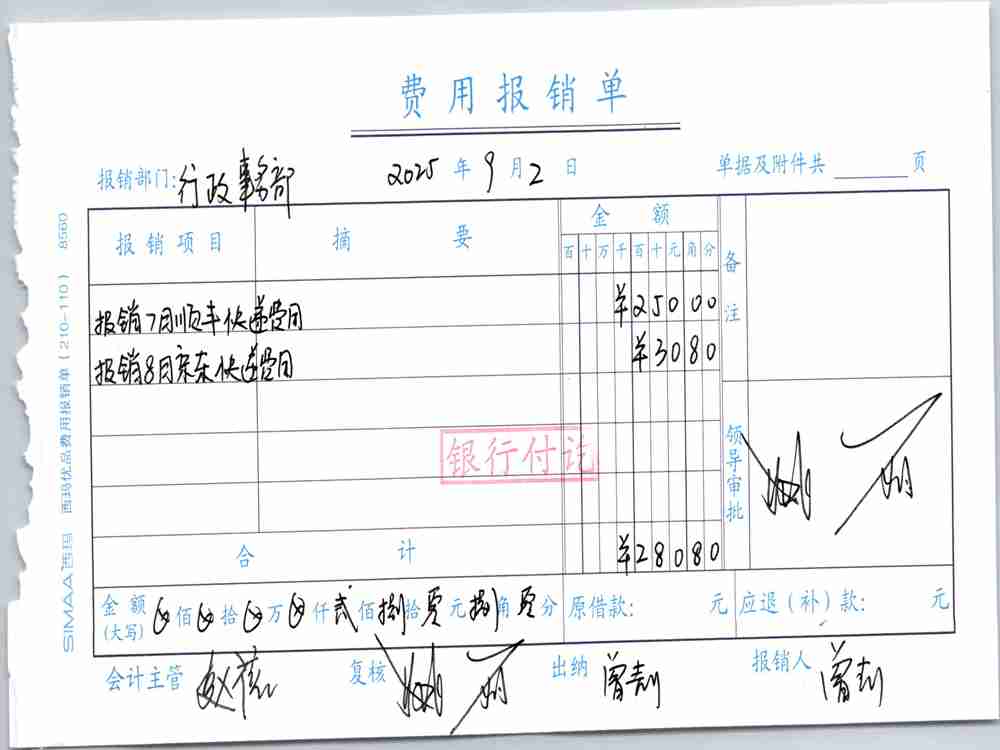 费用报销单
报销部门:行政事务部 2025年9月2日 单据及附件共 页
报销项目 摘要 金额 备注
百十万千百十元角分
报销7月顺丰快递费用 ¥25000
报销8月京东快递费用 ¥3080
银行付讫
领导审批
合计 ¥28080
金额(大写) 佰 拾 万 仟贰佰捌拾零元捌角零分 原借款: 元 应退(补)款: 元
会计主管 复核 出纳 曾 报销人 曾
SIMAA西玛 西玛优品费用报销单(210-110) 8560